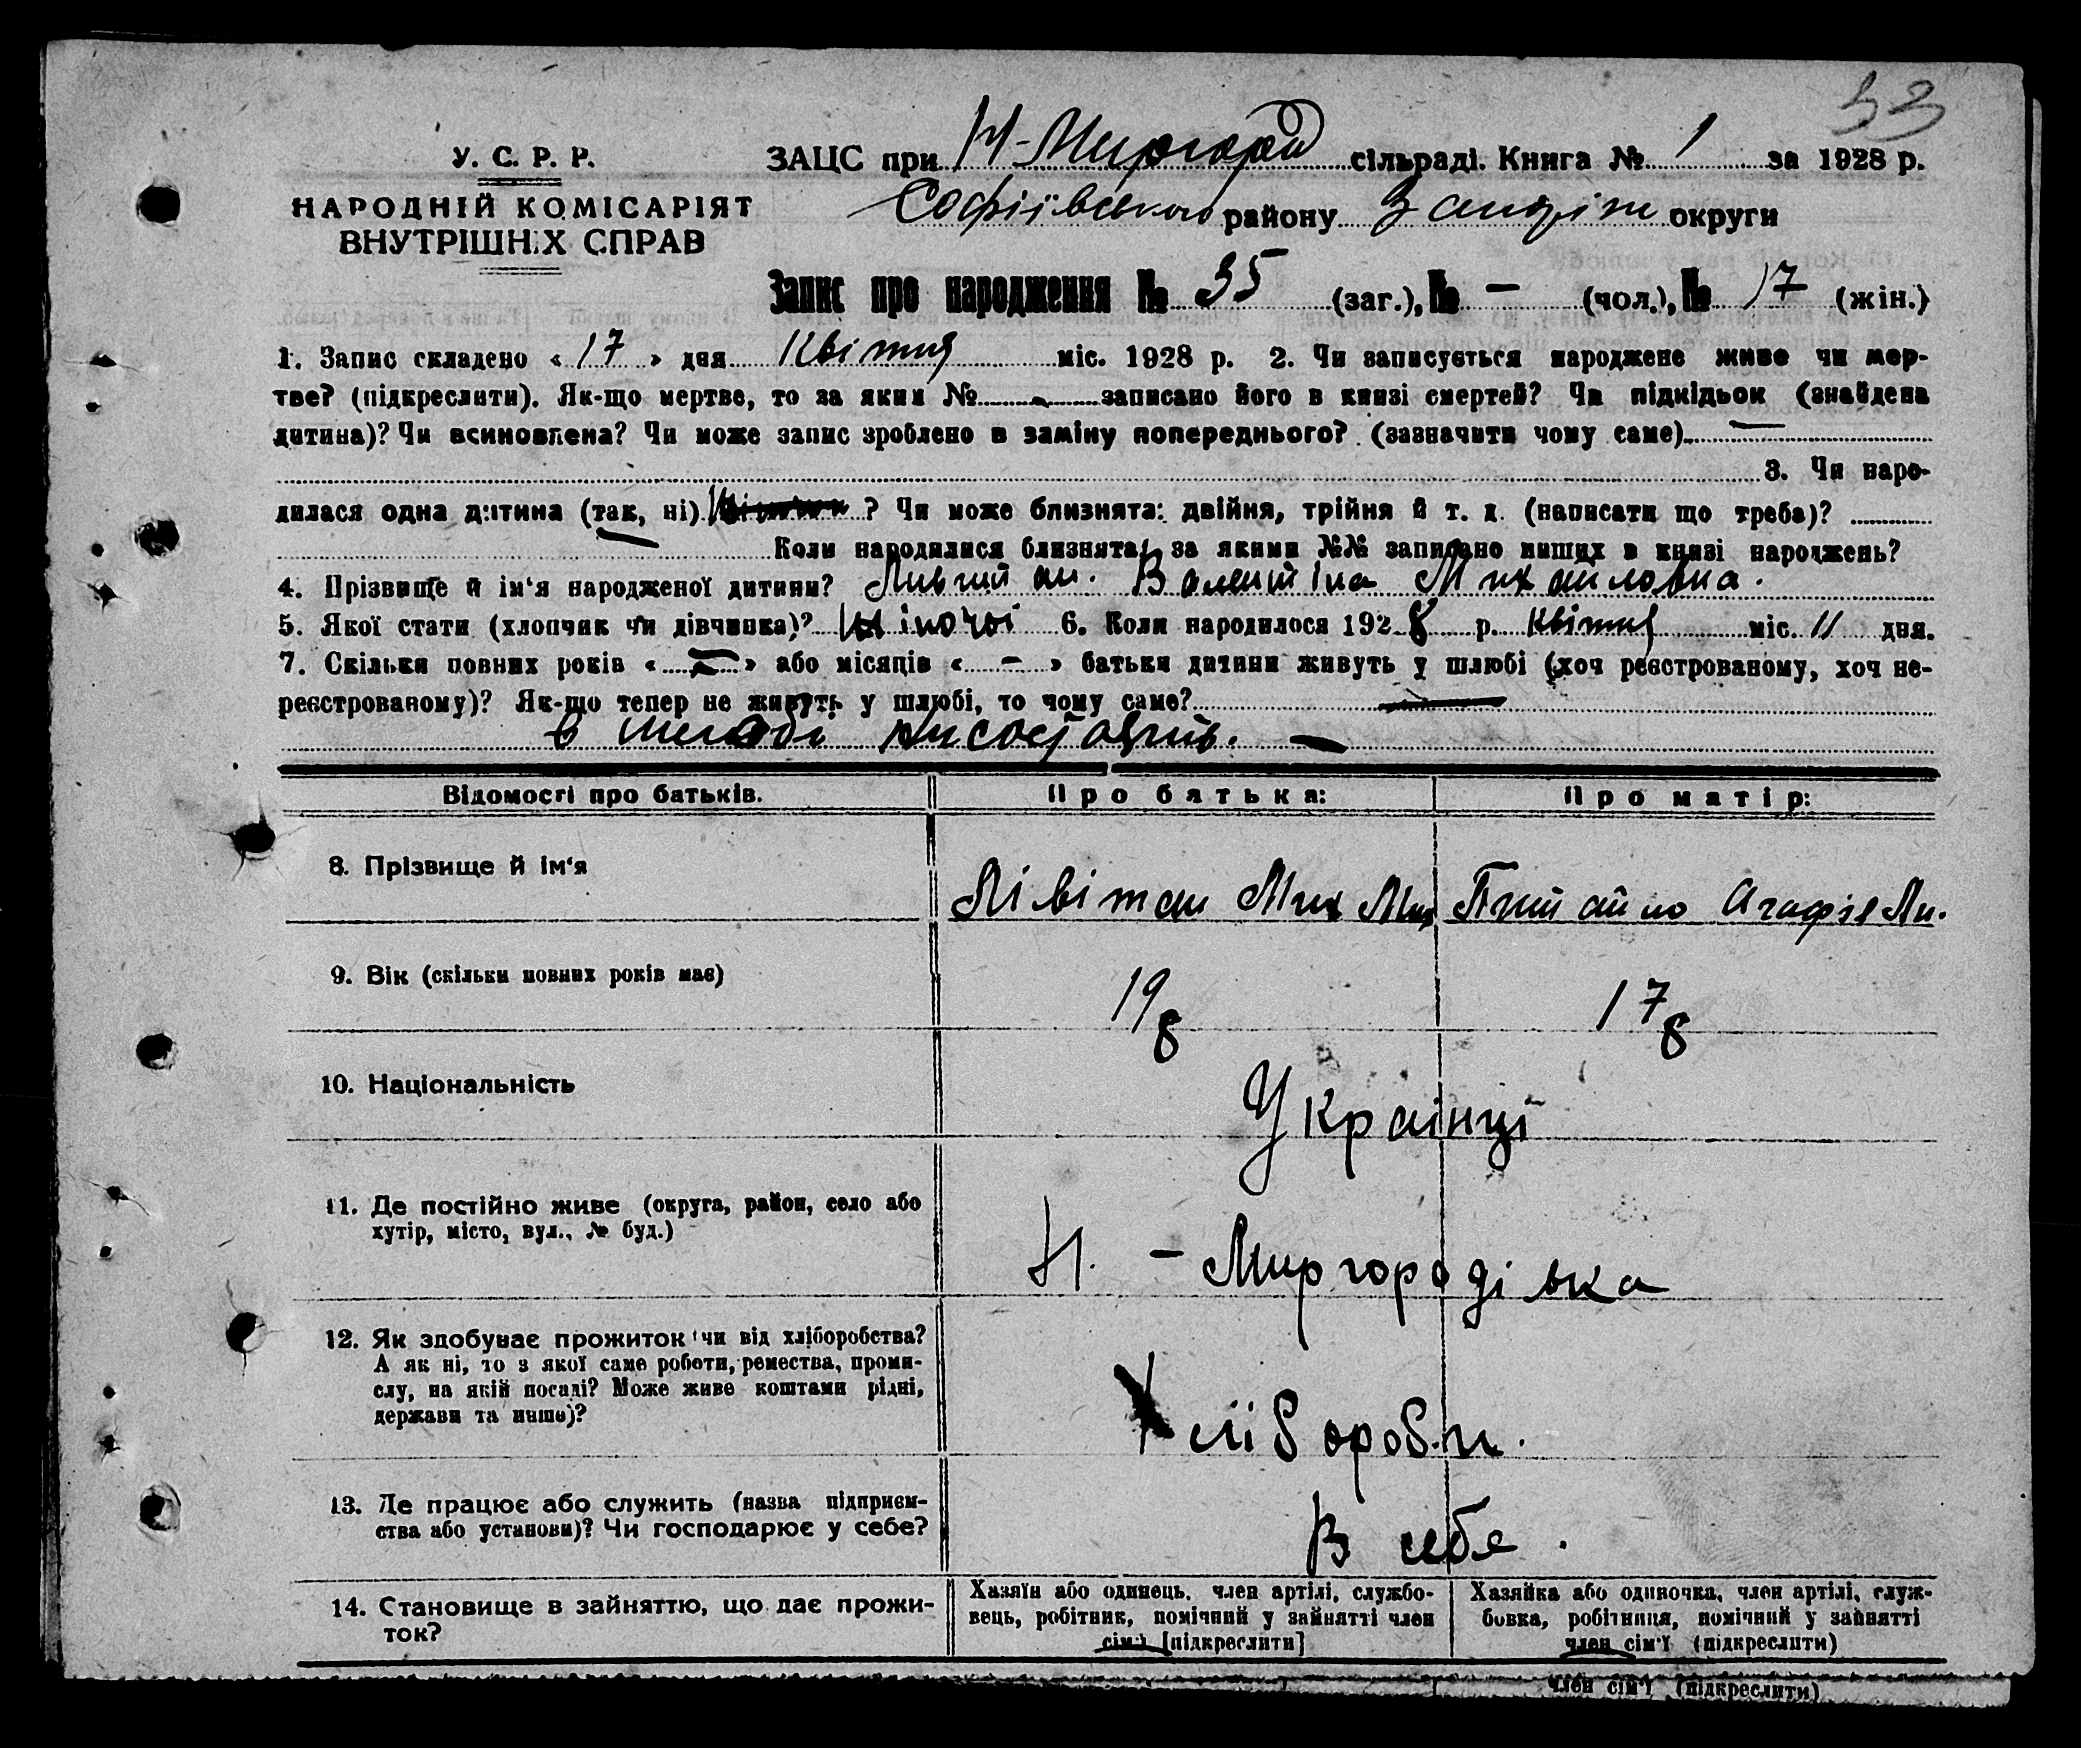 33
У. С. Р. Р.
НАРОДНІЙ КОМІСАРІЯТ
ВНУТРІШНІХ СПРАВ
ЗАЦС при Н-Миргород сільраді. Книга № 1 за 1928 р.
Софіївського району Запоріж округи
Запис про народження № 35 (заг.), № — (чол.), № 17 (жін.)
1. Запис складено « 17 » дня Квітня міс. 1928 р. 2. Чи записується народжене живе чи мер-
тве? (підкреслити). Як-що мертве, то за яким № - записано його в книзі смертей? Чи підкідьок (знайдена
дитина)? Чи всиновлена? Чи може запис зроблено в заміну попереднього? (зазначити чому саме) —
3. Чи наро-
дилася одна дитина (так, ні) ? Чи може близнята: двійня, трійня й т. д. (написати що треба)?
Коли народилися близнята, за якими №№ записано инших в книзі народжень?
4. Прізвище й ім‘я народженої дитини? Валентіна Михайловна.
5. Якої стати (хлопчик чи дівчинка)? Жіночої 6. Коли народилося 1928 р. Квітня міс. 11 дня.
7. Скільки повних років « — » або місяців « - » батьки дитини живуть у шлюбі (хоч реєстрованому, хоч не-
реєстрованому)? Як-що тепер не живуть у шлюбі, то чому саме? —
в шлюбі —
Відомості про батьків.
Про батька:
Про матір:
8. Прізвище й ім‘я
Лівітан Мих Мих
Агафія
9. Вік (скільки повних років має)
19/8
17/8
10. Національність
Украінці
11. Де постійно живе (округа, район, село або
хутір, місто, вул., № буд.)
Н. - Миргородівка
12. Як здобуває прожиток чи від хліборобства?
А як ні, то з якої саме роботи, ремества, проми-
слу, на якій посаді? Може живе коштами рідні,
держави та инше)?
Хліборобн.
13. Де працює або служить (назва підприєм-
ства або установи)? Чи господарює у себе?
В себе.
14. Становище в зайняттю, що дає прожи-
ток?
Хазяїн або одинець, член артілі, службо-
вець, робітник, помічний у зайнятті член
сім‘ї [підкреслити]
Хазяйка або одиночка, член артілі, служ-
бовка, робітниця, помічний у зайнятті
член сім‘ї (підкреслити)
член сім‘ї (підкреслити)